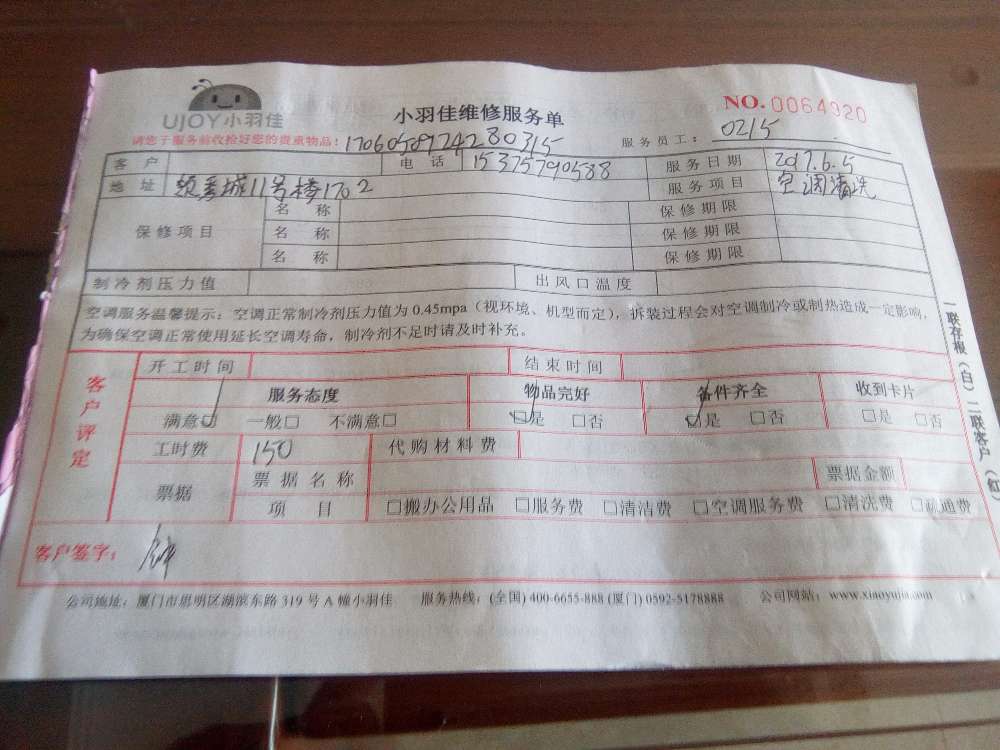 UJOY小羽佳
小羽佳维修服务单
NO.0064920
请您于服务前收捡好您的贵重物品!
服务员工: 0215
客户 电话 15375790588 服务日期 2017.6.5
地址 11号楼1702 服务项目 空调清洗
保修项目 名称 保修期限
名称 保修期限
名称 保修期限
制冷剂压力值 出风口温度
空调服务温馨提示:空调正常制冷剂压力值为0.45mpa(视环境、机型而定),拆装过程会对空调制冷或制热造成一定影响,
为确保空调正常使用延长空调寿命,制冷剂不足时请及时补充。
客户评定 开工时间 结束时间
服务态度 物品完好 备件齐全 收到卡片
满意☑ 一般□ 不满意□ ☑是 □否 ☑是 □否 □是 □否
工时费 150 代购材料费
票据 票据名称 票据金额
项目 □搬办公用品 □服务费 □清洁费 □空调服务费 □清洗费 □疏通费
客户签字:
公司地址:厦门市思明区湖滨东路319号A幢小羽佳 服务热线:(全国)400-6655-888(厦门)0592-5178888 公司网站:www.xiaoyujia.com
一联存根(白)二联客户(红)